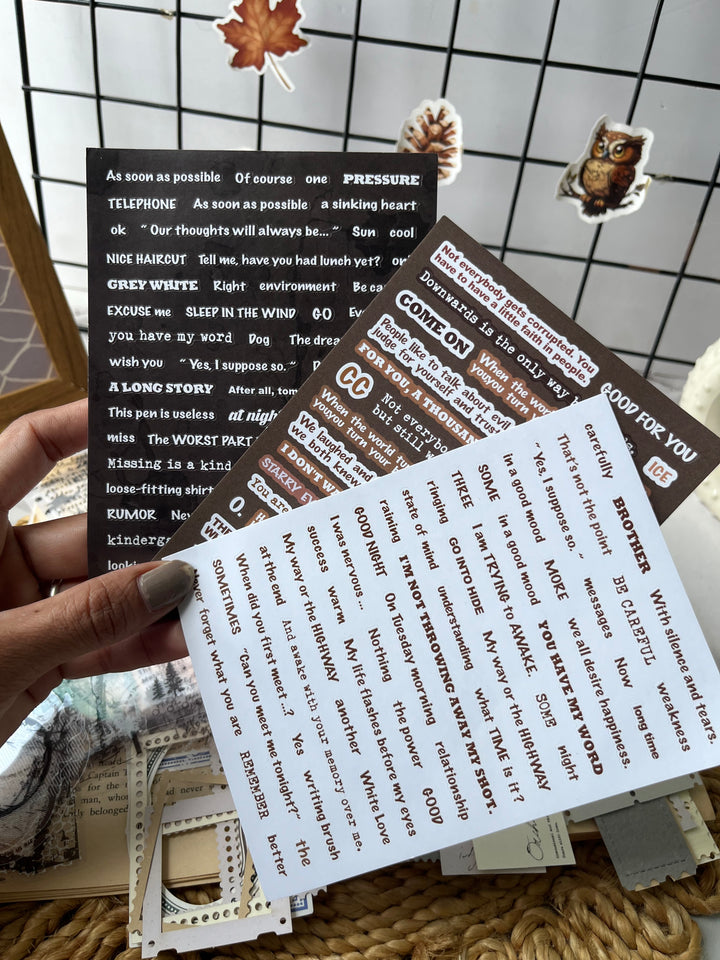 As soon as possible Of course one PRESSURE
TELEPHONE As soon as possible a sinking heart
ok "Our thoughts will always be..." Sun cool
NICE HAIRCUT Tell me, have you had lunch yet?
GREY WHITE Right environment
EXCUSE me SLEEP IN THE WIND GO
you have my word Dog The
wish you "Yes, I suppose so."
A LONG STORY After all,
This pen is useless at
miss The WORST PART
Missing is a kind
loose-fitting shirt
RUMOR
Not everybody gets corrupted. You
have to have a little faith in people.
Downwards is the only way
GOOD FOR YOU
COME ON
When the
youyou turn
ICE
People like to talk about evil
judge for yourself and trust
FOR YOU, A
CC
Not
but still
When the world
youyou turn your
We laughed and
We both knew
I DON'T
STARRY
You are
O.
carefully BROTHER With silence and tears.
That's not the point BE CAREFUL weakness
"Yes, I suppose so." messages Now long time
in a good mood MORE we all desire happiness.
SOME in a good mood YOU HAVE MY WORD
THREE I am TRYING to AWAKE. SOME night
ringing GO INTO HIDE My way or the HIGHWAY
state of mind understanding what TIME is it?
raining I'M NOT THROWING AWAY MY SHOT.
GOOD NIGHT On Tuesday morning relationship
I was nervous... Nothing the power GOOD
success warm My life flashes before my eyes
My way or the HIGHWAY another White Love
at the end And awake with your memory over me.
When did you first meet...? Yes writing brush
SOMETIMES "Can you meet me tonight?" the
forget what you are REMEMBER better